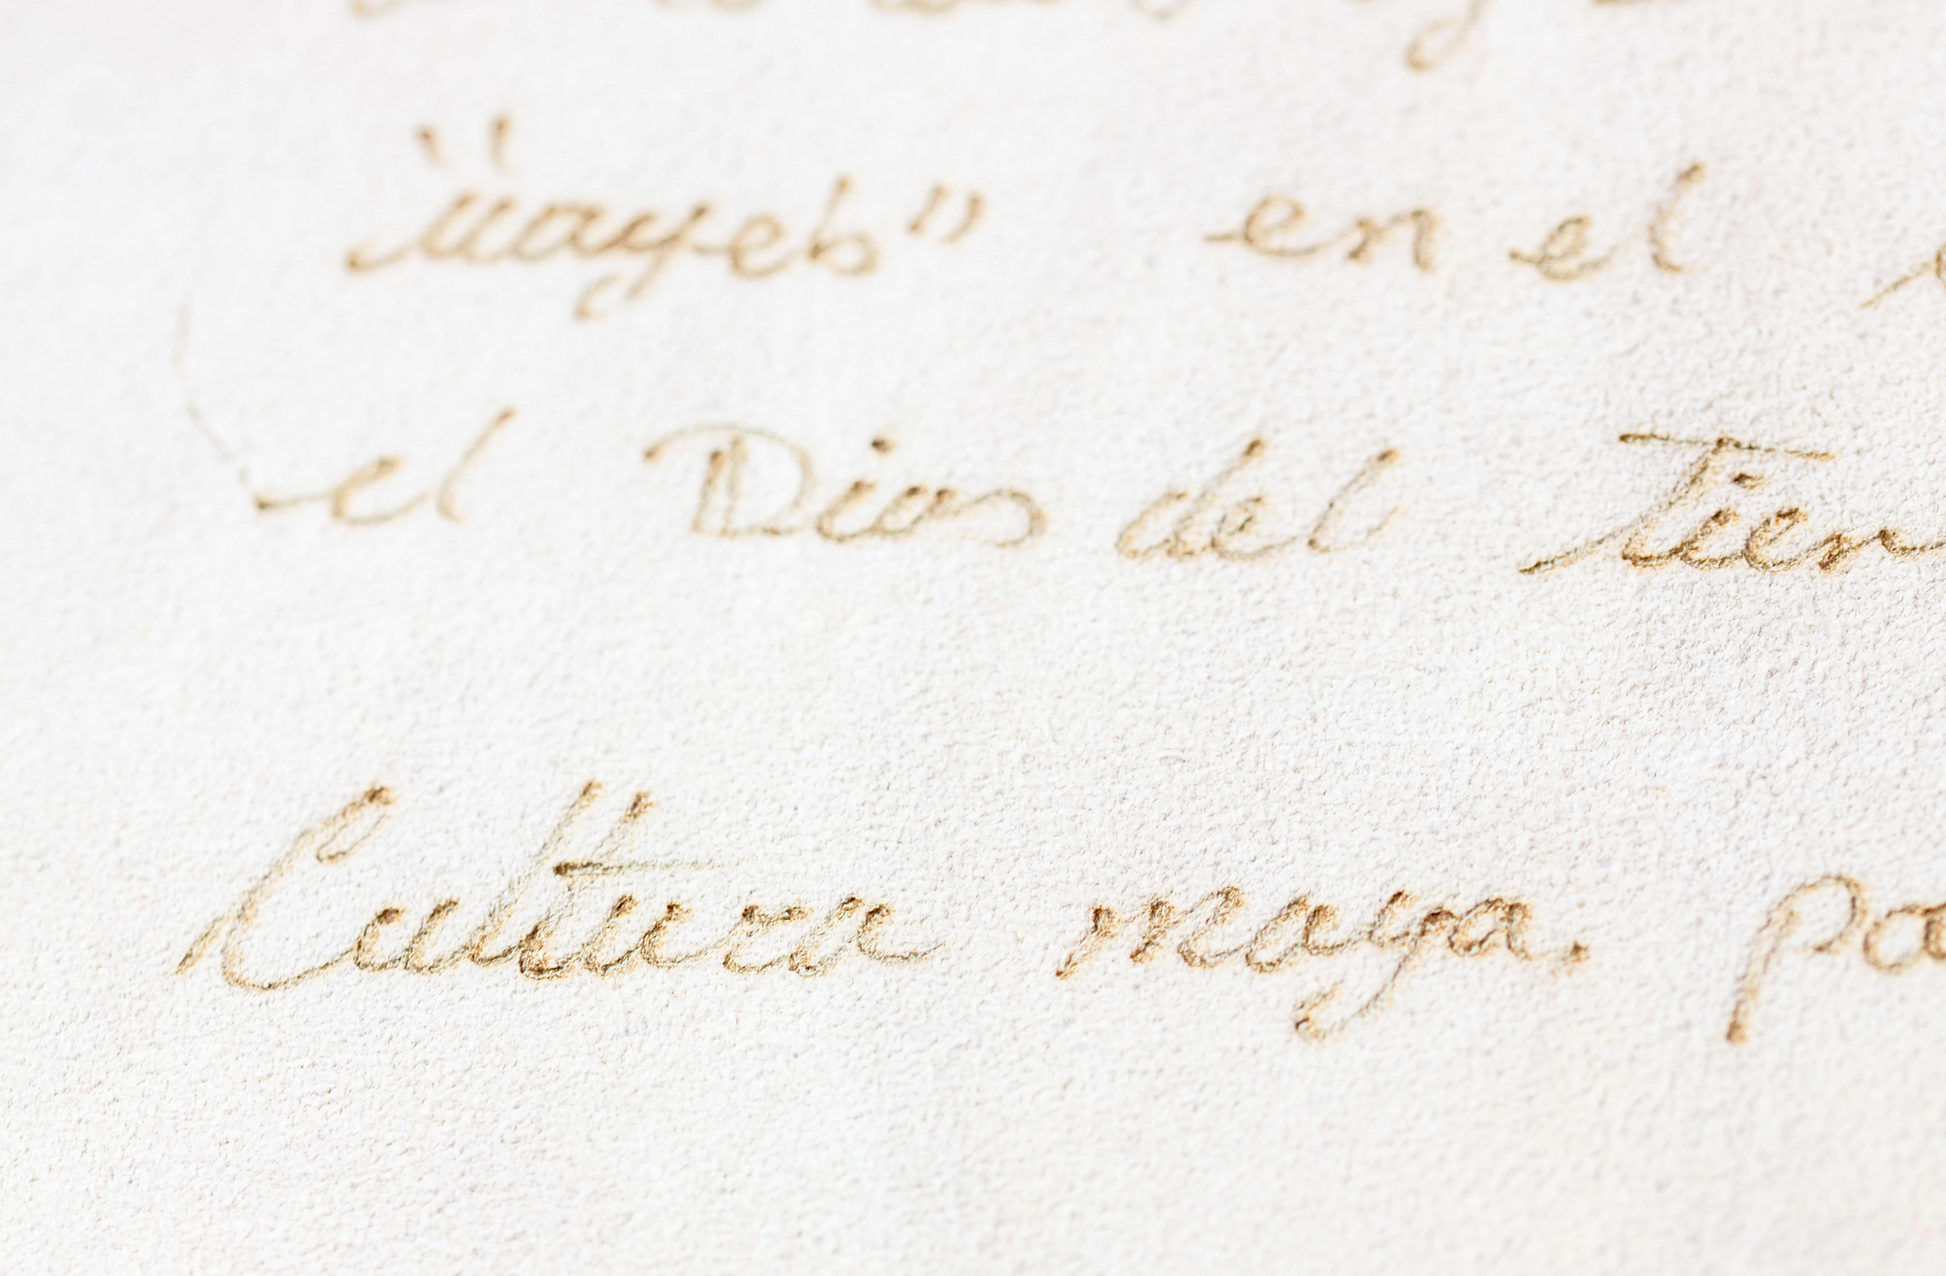 "uayeb" en el
el Dios del Tiem
Cultura maya, pa